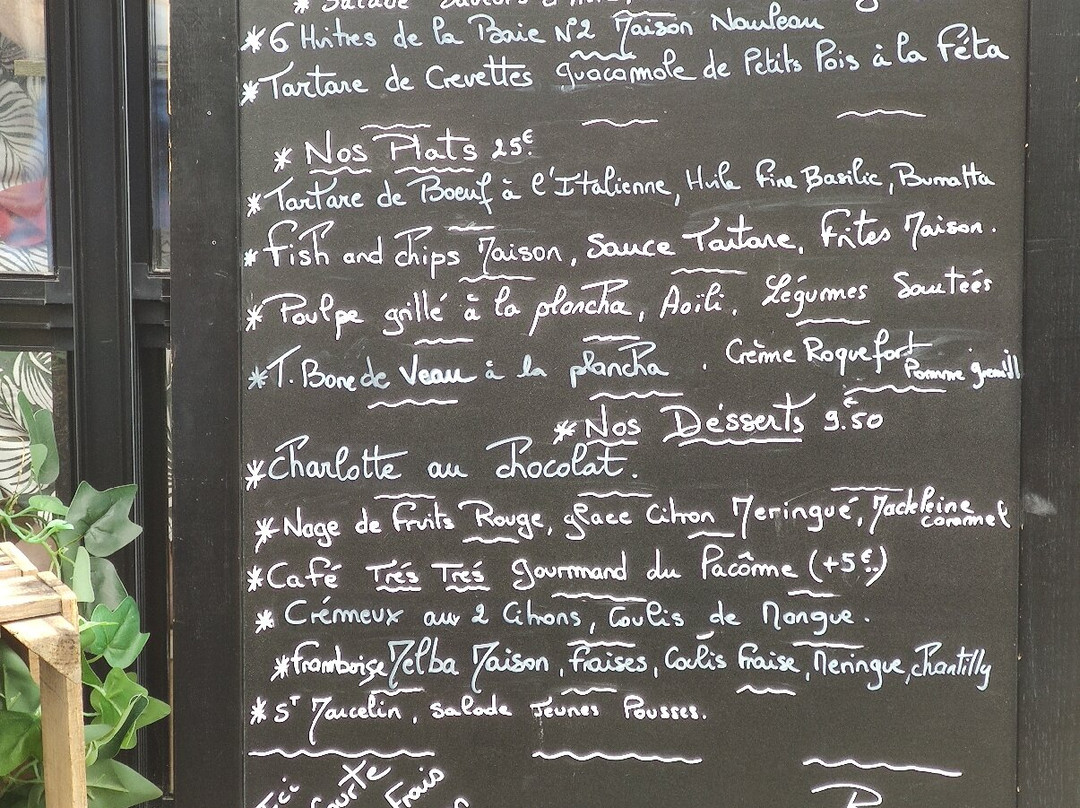 * Salade
* 6 Huîtres de la Baie N°2 Maison Nauleau
* Tartare de Crevettes guacamole de Petits Pois à la Féta
* Nos Plats 25€
* Tartare de Boeuf à l'Italienne, Huile fine Basilic, Burratta
* Fish and chips Maison, Sauce Tartare, Frites Maison.
* Poulpe grillé à la plancha, Aoili, Légumes Sautées
* T. Bone de Veau à la plancha . Crème Roquefort
Pomme grenaill
* Nos Désserts 9.50€
* Charlotte au chocolat.
* Nage de fruits Rouge, glace Citron Meringué, Madeleine
caramel
* Café Trés Trés gourmand du Pacôme (+5€.)
* Crémeux aux 2 Citrons, Coulis de Mangue.
* framboise Melba Maison, fraises, Coulis fraise, Meringue, Chantilly
* St Marcelin, salade Jeunes Pousses.
Ici
Carte
Frais